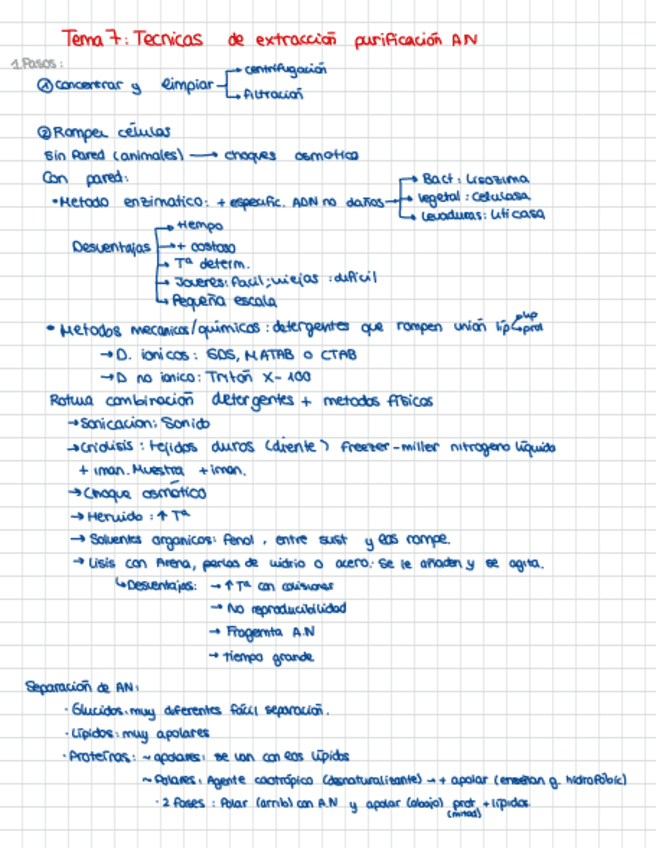 Tema 7: Tecnicas de extracción purificación AN
1.Pasos:
① Concentrar y limpiar → centrifugación
→ filtración
② Romper células
Sin Pared (animales) → choques osmotico
Con pared:
• Metodo enzimatico: + especific. ADN no daños → Bact: Lisozima
→ vegetal: Celulasa
→ Levaduras: Liticasa
Desventajas → tiempo
→ + costoso
→ Tª determ.
→ Jovenes: facil; viejas: dificil
→ Pequeña escala
• Metodos mecanicos/quimicos: detergentes que rompen unión lip → lip
→ prot
→ D. ionicos: SDS, MATAB o CTAB
→ D no ionico: Tritón X-100
Rotura combinación detergentes + metodos físicos
→ Sonicacion: Sonido
→ Criolisis: tejidos duros (diente) freezer-miller nitrogeno líquido
+ iman. Muestra + iman.
→ Choque osmótico
→ Hervido: ↑ Tª
→ Solventes organicos: fenol, entre sust y las rompe.
→ Lisis con Arena, perlas de vidrio o acero. Se le añaden y se agita.
↳ Desventajas: → ↑ Tª con colisiones
→ No reproducibilidad
→ Fragemta A.N
→ tiempo grande
Separación de AN:
· Glucidos: muy diferentes fácil separación.
· Lípidos: muy apolares
· Proteínas: ~ apolares: se van con los lípidos
~ Polares: Agente caotrópico (desnaturalizante) → + apolar (enseñan g. hidrofóbic)
· 2 fases: Polar (arrib) con A.N y apolar (abajo) prot + lípidos.
(mitad)